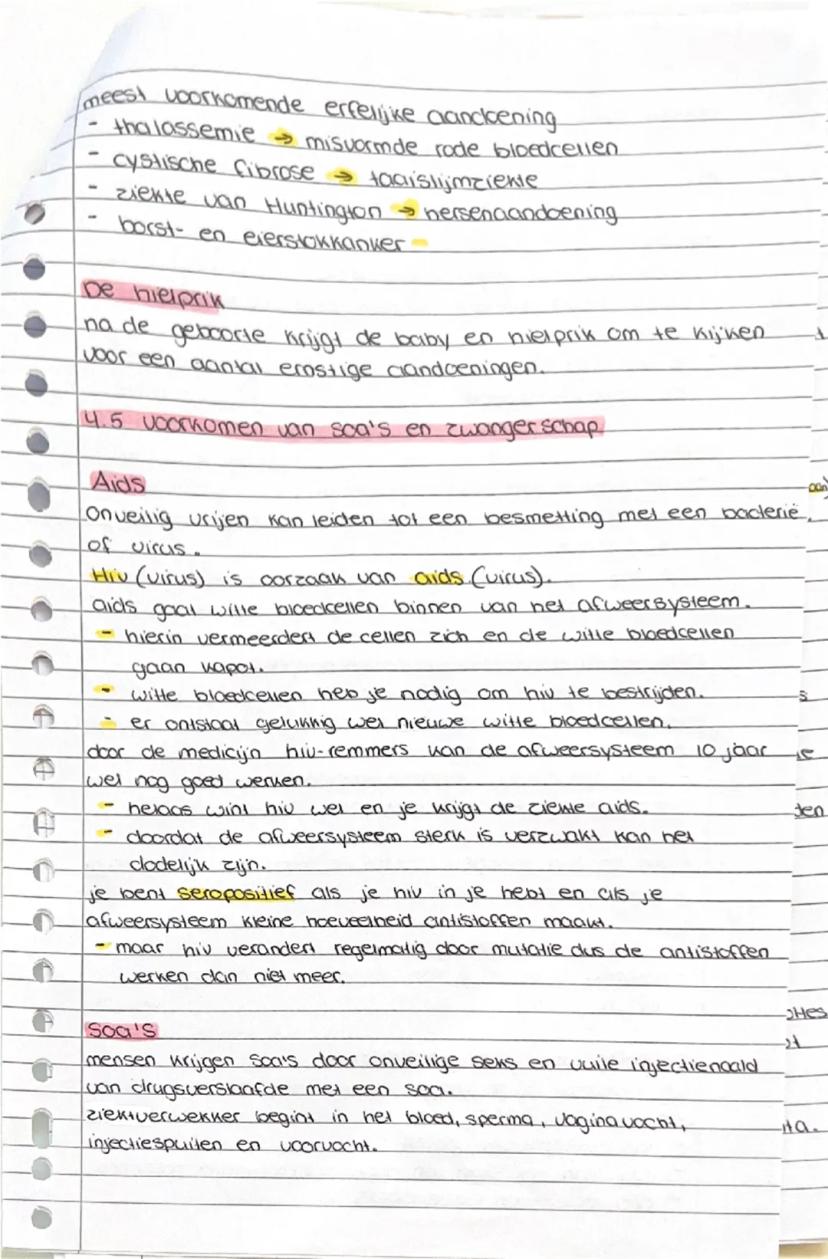 meest voorkomende erfelijke aandoening
- thalassemie → misvormde rode bloedcellen
- cystische fibrose → taaislijmziekte
- ziekte van Huntington → hersenaandoening
- borst- en eierstokkanker -
De hielprik
na de geboorte krijgt de baby en hielprik om te kijken
voor een aantal ernstige aandoeningen.
4.5 voorkomen van soa's en zwangerschap
Aids
Onveilig vrijen kan leiden tot een besmetting met een bacterië
of virus.
Hiv (virus) is oorzaak van aids (virus).
aids gaat witte bloedcellen binnen van het afweersysteem.
- hierin vermeerdert de cellen zich en de witte bloedcellen
gaan kapot.
- witte bloedcellen heb je nodig om hiv te bestrijden.
- er ontstaat gelukkig wel nieuwe witte bloedcellen.
door de medicijn hiv-remmers kan de afweersysteem 10 jaar
wel nog goed werken.
- helaas wint hiv wel en je krijgt de ziekte aids.
- doordat de afweersysteem sterk is verzwakt kan het
dodelijk zijn.
je bent seropositief als je hiv in je hebt en als je
afweersysteem kleine hoeveelheid antistoffen maakt.
- maar hiv verandert regelmatig door mutatie dus de antistoffen
werken dan niet meer.
Soa's
mensen krijgen soa's door onveilige seks en vuile injectienaald
van drugsverslaafde met een soa.
ziektverwekker begint in het bloed, sperma, vaginavocht,
injectiespuiten en voorvocht.